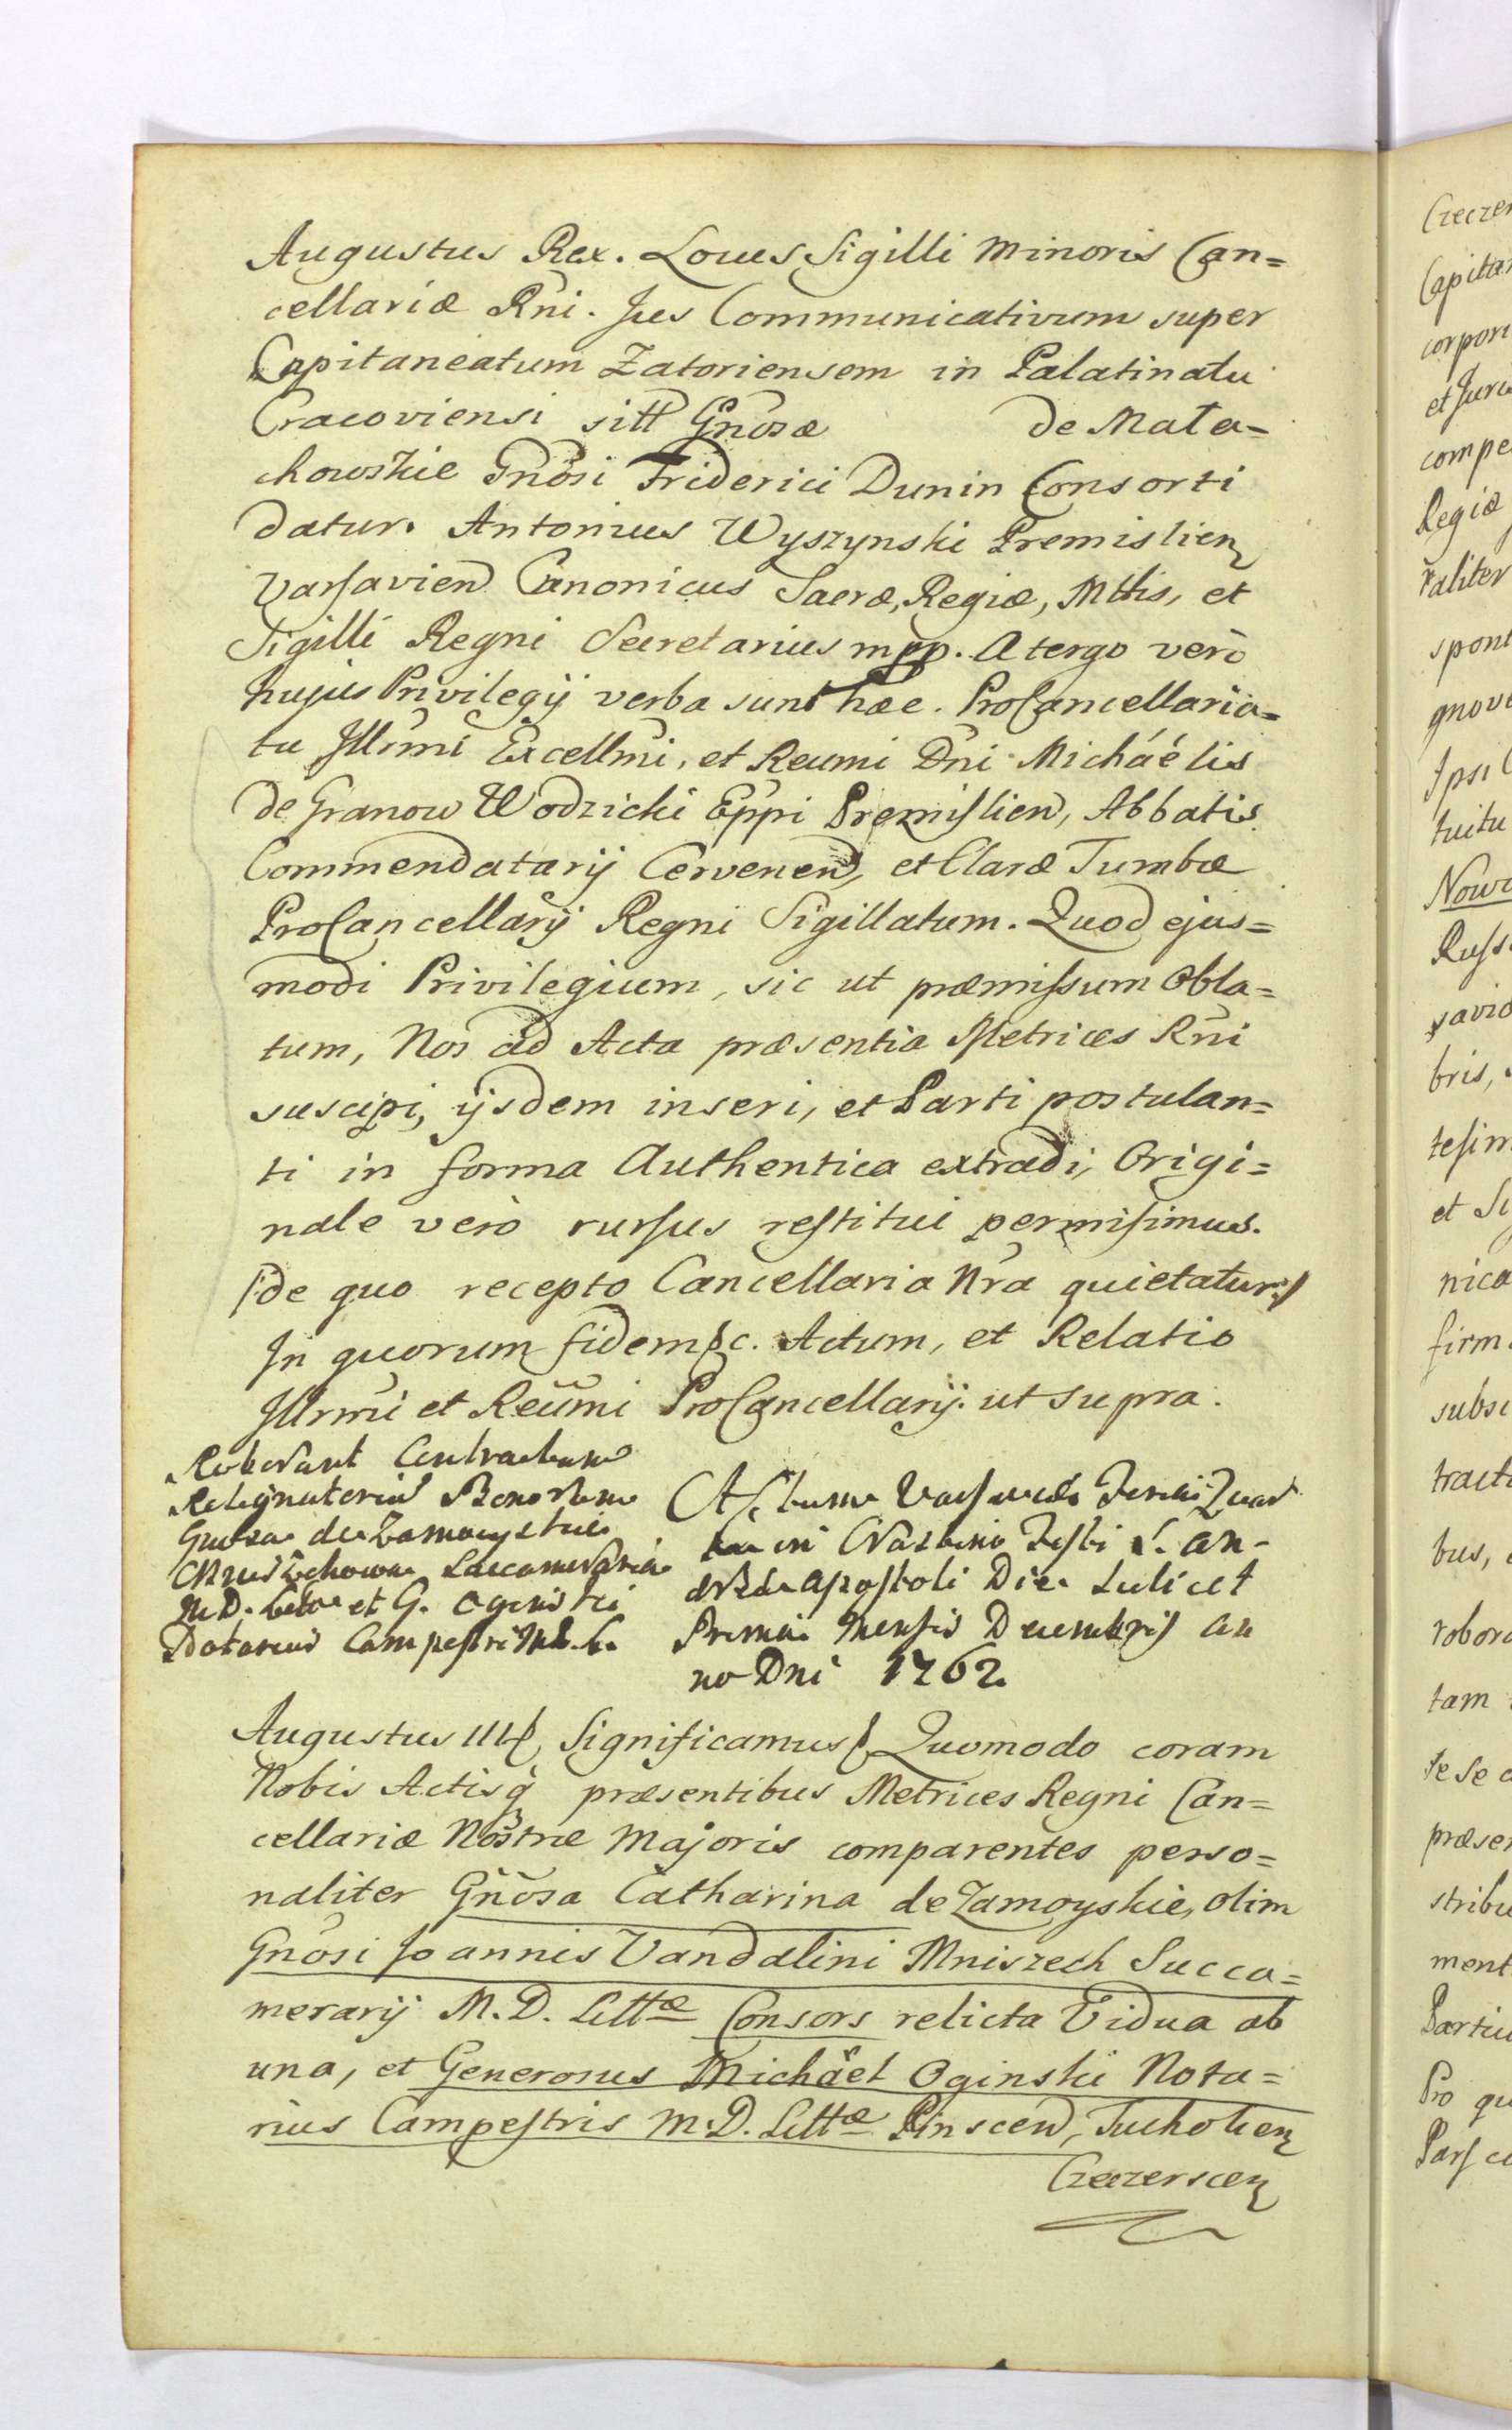 Augustus Rex. Locus Sigilli Minoris Can=
cellariæ Rñi. Jus Communicativum super
Capitaneatum Zatoriensem in Palatinatu
Cracoviensi sitt Gñosæ de Mała=
chowskie Gñosi Friderici Dunin Consorti
datur. Antonius Wyszynski Premislien
Varsavien Canonicus Sacræ, Regiæ, Mttis, et
Sigilli Regni Secretarius mpp. A tergo verò
hujus Privilegij verba sunt hæc. ProCancellaria=
tu Illrmi Excellmi, et Reumi Dñi Micháélis
de Granow Wodzicki Eppi Premislien, Abbatis
Commendatarij Cervenen, et Claræ Tumbæ
ProCancellarij Regni Sigillatum. Quod ejus=
modi Privilegium, sic ut præmissum Obla=
tum, Nos ad Acta præsentia Metrices Rñi
suscipi, ijsdem inseri, et Parti postulan=
ti in forma Authentica extradi, Origi=
nale verò rursus restitui permisimus.
/:de quo recepto Cancellaria Nra quietatur:/
In quorum fidem &c. Actum, et Relatio
Illrmi et Reũmi ProCancellarij. ut supra.
Roborant Contractum
Resignatorium Bonorum
Gnosa de Zamoyskie
Mniszchowa Succameraria
M. D. Litt. et G. Oginski
Notarius Campestris M. D. L.
Actum Varsaviæ Feria Quar
ta in Crastino Festi S. An-
dreæ Apostoli Die Scilicet
Prima Mensis Decembris An
no Dni 1762
Augustus III &, Significamus & Quomodo coram
Nobis Actisq̃ præsentibus Metrices Regni Can=
cellariæ Nostræ Majoris comparentes perso=
naliter Gñosa Catharina de Zamoyskie, olim
Gñosi Joannis Vandalini Mniszech Succa=
merarij M. D. Littæ Consors relicta Vidua ab
una, et Generosus Michäel Oginski Nota=
rius Campestris M. D. Littæ Pinscen, Tucholien
Czeczerscen